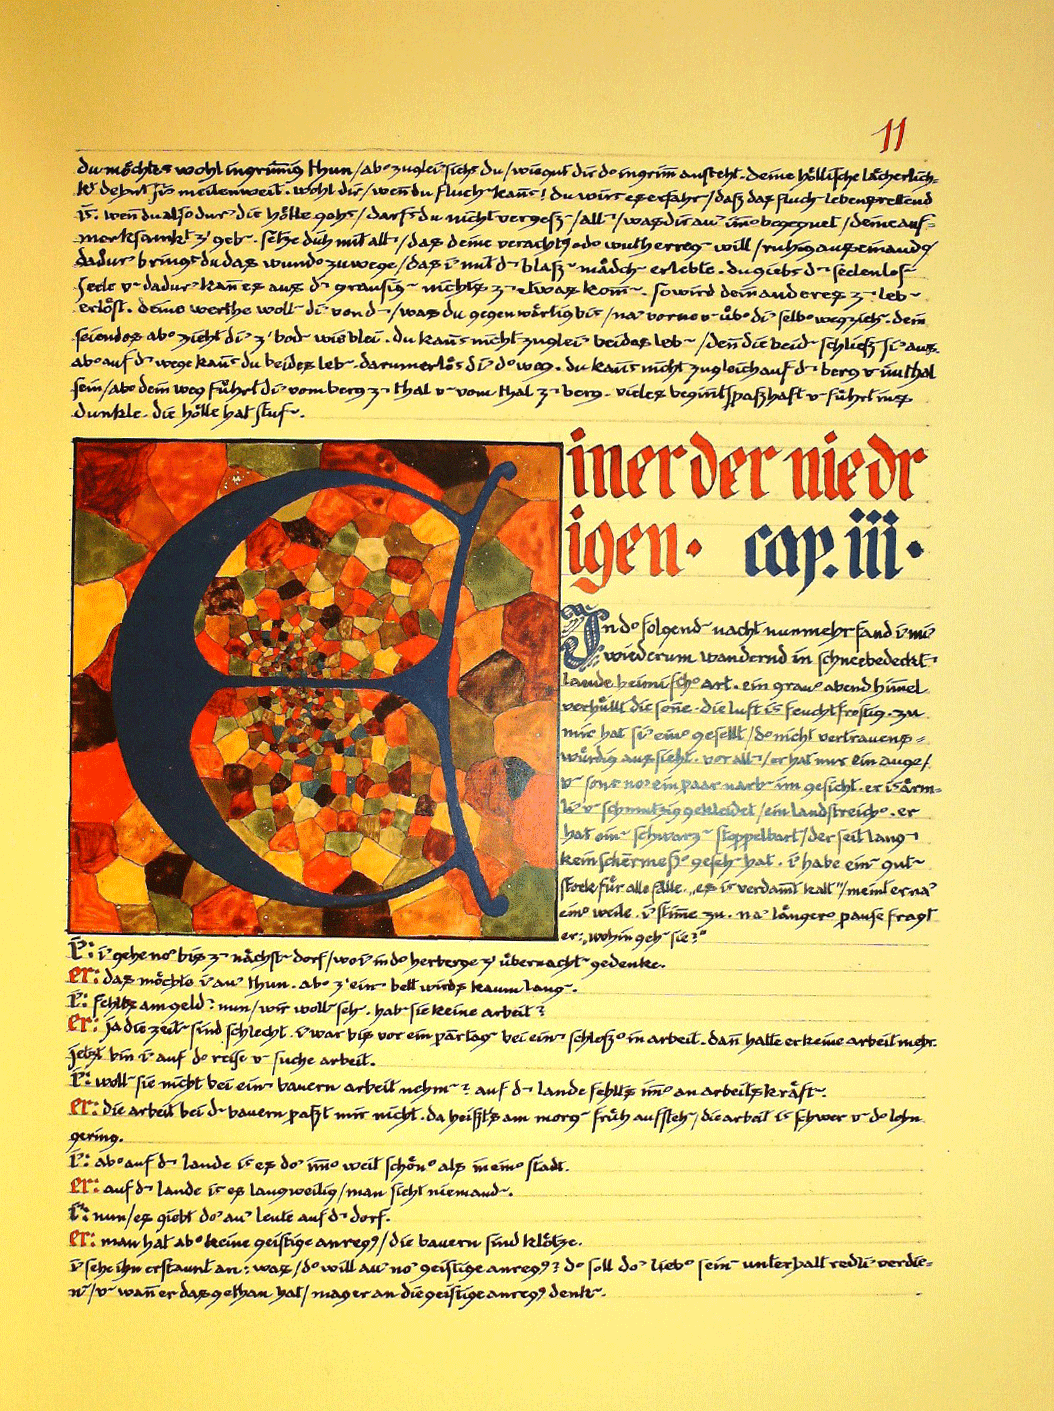 11
du möchtes wohl ingrim̄ig thun / ab° zuglei siehs du / wie gut dir d° ingrim̄ ansteht. deine höllische lächerlich=
k˜ dehnt si˜ meilenweit. wohl dir / wen̄ du fluch˜ kan̄s! du wirs es erfahr˜ / daß das fluch˜ lebensrettend
is˜. wen̄ du also dur˜ die hölle gehs / darfs du nicht vergeß˜ / all˜ / was dir au˜ im̄° begegnet / deine auf=
merksamk˜t z˜ geb˜. setze dich mit all˜ / das deine veracht˜g od° wuth erreg˜ will / ruhig auseinand°
dadur˜ brings du das wund° zuwege / das i˜ mit d˜ blaß˜ mädch˜ erlebte. du giebs d˜ seelenlos˜
seele v˜ dadur˜ kan̄ es aus d˜ grausig˜ nichts z˜ etwas kom̄˜. so wird dein anderes z˜ leb˜
erlöst. deine werthe woll˜ di˜ von d˜ / was du gegenwärtig bis / na˜ vorne v˜ üb° di˜ selb° wegzieh˜. dein
seiendes ab° zieht di˜ z˜ bod˜ wie blei. du kan̄s nicht zuglei˜ beides leb˜ / den̄ die beid˜ schließ˜ si˜ aus.
ab° auf d˜ wege kan̄s du beides leb˜. darum erlös di˜ d° weg. du kan̄s nicht zugleich auf d˜ berg v˜ im thal
sein / ab° dein weg führt di˜ vom berg z˜ thal v˜ vom thal z˜ berg. vieles begin̄t spaßhaft v˜ führt ins
dunkle. die hölle hat stuf˜.
Einer der niedr
igen. cap. iii.
In d° folgend˜ nacht nunmehr fand i˜ mi˜
wiederum wandernd in schneebedeckt˜
lande heimisch° art. ein grau° abendhim̄el
verhüllt die son̄e. die luft is˜ feuchtfrostig. zu
mir hat si˜ ein° gesellt / d° nicht vertrauens=
würdig aussieht. vor all˜ / er hat nur ein auge /
v˜ sons no˜ ein paar narb˜ im gesicht. er is˜ ärm=
li˜ v˜ schmutzig gekleidet / ein landstreich°. er
hat ein˜ schwarz˜ stoppelbart / der seit lang˜
kein schermeß° geseh˜ hat. i˜ habe ein˜ gut˜
stock für alle fälle. „es is˜ verdam̄t kalt" / meint er na˜
ein° weile. i˜ stim̄e zu. na˜ länger° pause fragt
er: „wohin geh˜ sie?"
I˜: i˜ gehe no˜ bis z˜ nächst˜ dorf / wo i˜ in d° herberge z˜ übernacht˜ gedenke.
er: das möchte i˜ au˜ thun. ab° z˜ ein˜ bett wirds kaum lang˜.
I˜: fehlts am geld? nun / wir woll˜ seh˜. hab˜ sie keine arbeit?
er: ja die zeit˜ sind schlecht. i˜ war bis vor ein pār tag˜ bei ein˜ schloß° in arbeit. dan̄ hatte er keine arbeit mehr.
jetzt bin i˜ auf d° reise v˜ suche arbeit.
I˜: woll˜ sie nicht bei ein˜ bauern arbeit nehm˜? auf d˜ lande fehlts im̄° an arbeitskräft˜.
er: die arbeit bei d˜ bauern paßt mir nicht. da heißts am morg˜ früh aufsteh˜ / die arbeit is˜ schwer v˜ d° lohn
gering.
I˜: ab° auf d˜ lande is˜ es do˜ im̄° weit schön° als in ein° stadt.
er: auf d˜ lande is˜ es langweilig / man sieht niemand˜.
I˜: nun / es giebt do˜ au˜ leute auf d˜ dorf.
er: man hat ab° keine geistige anreg˜g / die bauern sind klötze.
i˜ sehe ihn erstaunt an: was / d° will au˜ no˜ geistige anreg˜g? d° soll do˜ lieb° sein˜ unterhalt redli˜ verdie=
n˜ / v˜ wan̄ er das gethan hat / mag er an die geistige anreg˜g denk˜.